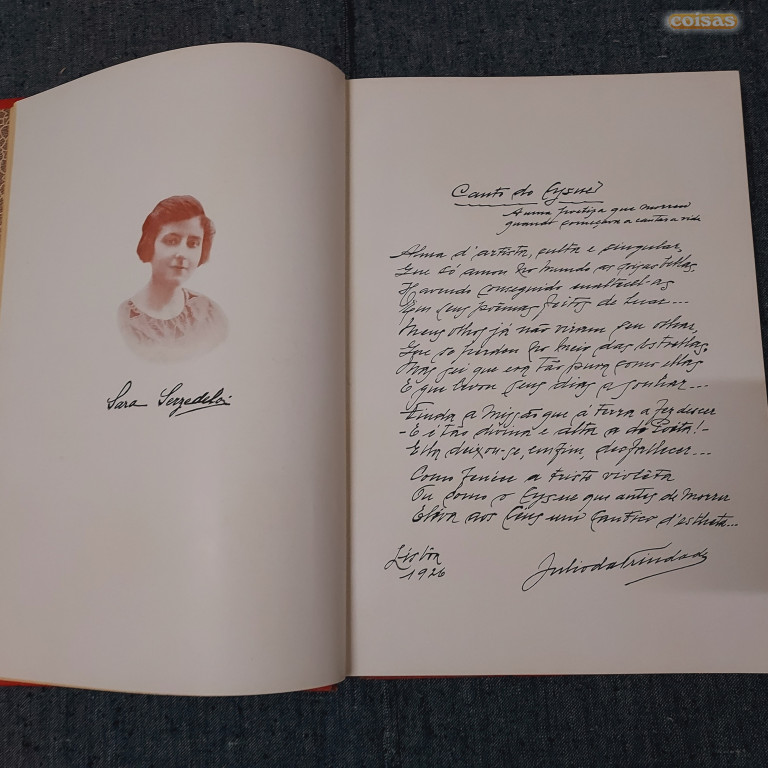 coisas
Sara Serzedelo
Canto do Cysne
A uma poetisa que morreu
quando começava a cantar a vida
Alma d'artista, culta e singular,
Que só amou no mundo as coisas bellas,
Havendo conseguido
Em seus poêmas feitos de luar...
Meus olhos já não viram seu olhar,
Que se perdeu no meio das estrellas.
Mas sei que era tão pura como ellas
E que levou seus dias a sonhar...
Finda a Missão que á terra a fez descer
- E é tão divina e alta a do Poéta! -
Ella deixou-se, emfim, desfallecer...
Como fenece a triste violêta
Ou como o Cysne que antes de morrer
Eléva aos Céus um Cantico d'esthéta...
Lisbôa
1926
Julio da Trindade